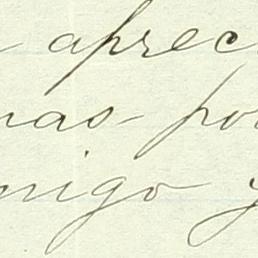 aprec
mas po
migo y